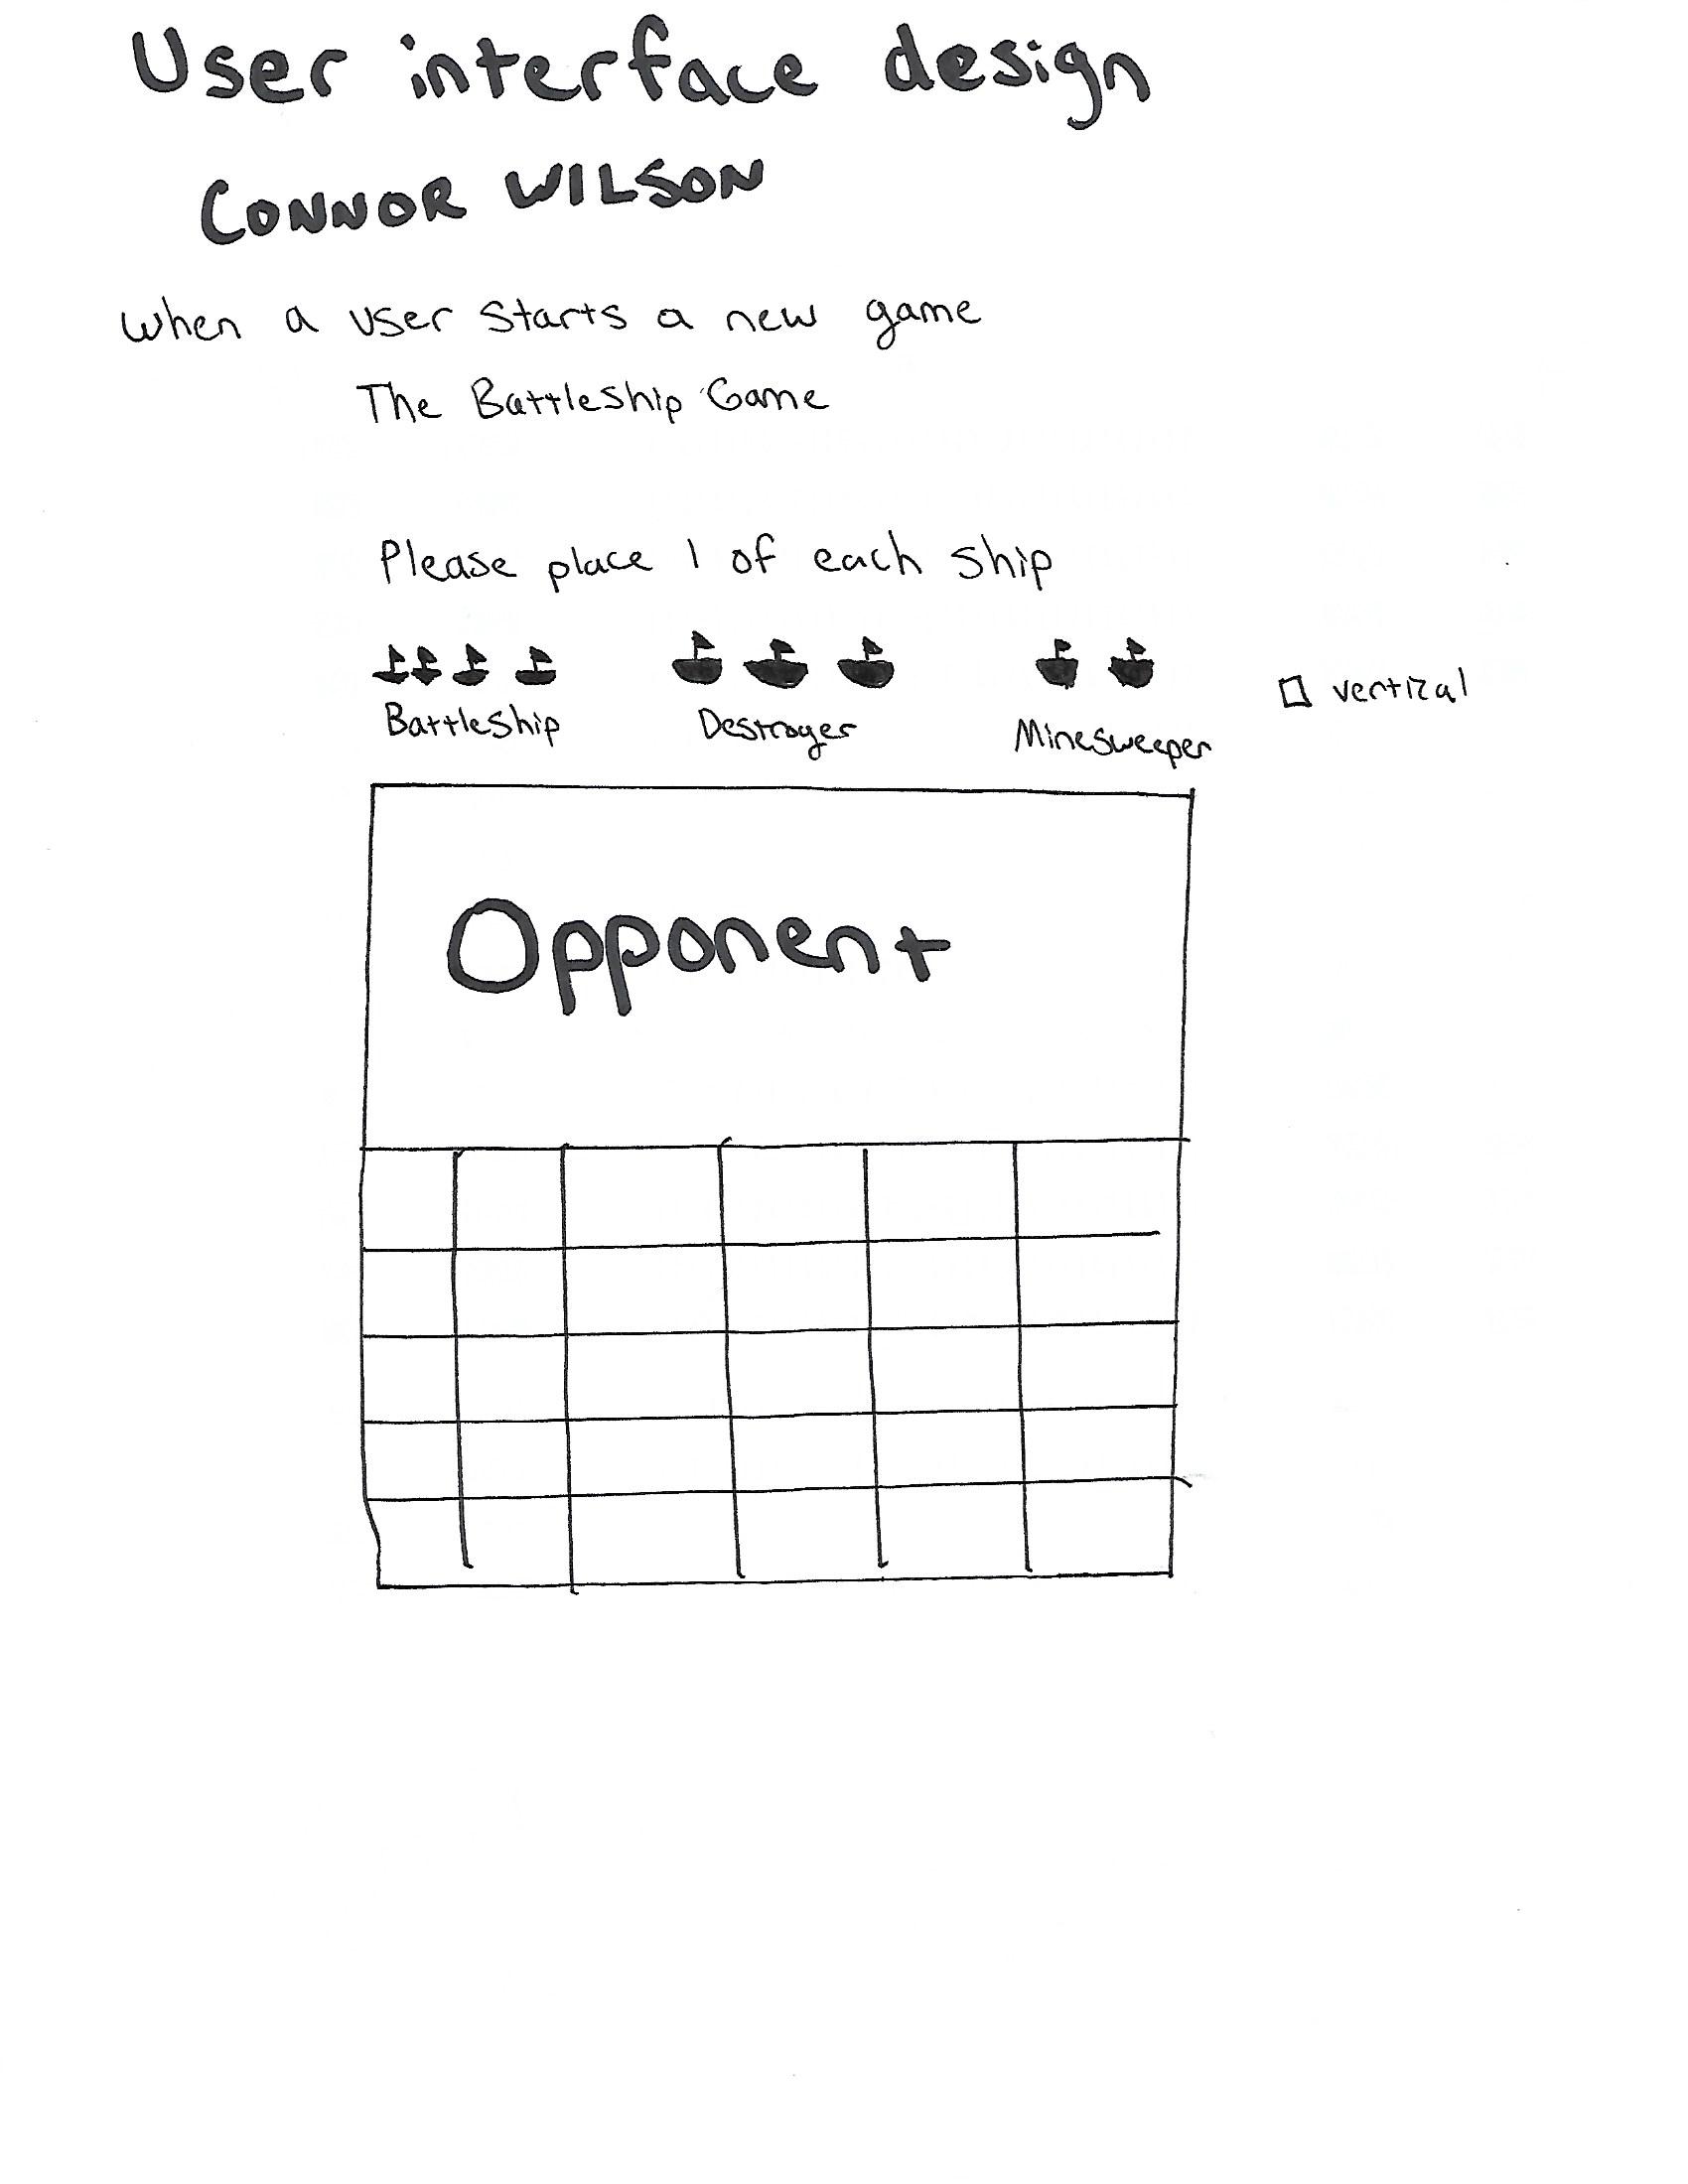 User interface design
CONNOR WILSON
when a user starts a new game
The Battleship Game
Please place 1 of each ship
Battleship Destroyer Minesweeper
vertical
Opponent